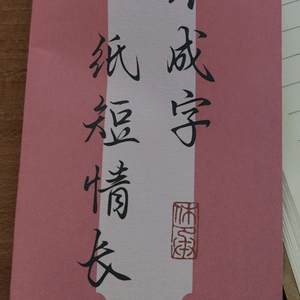 成字
纸短情长